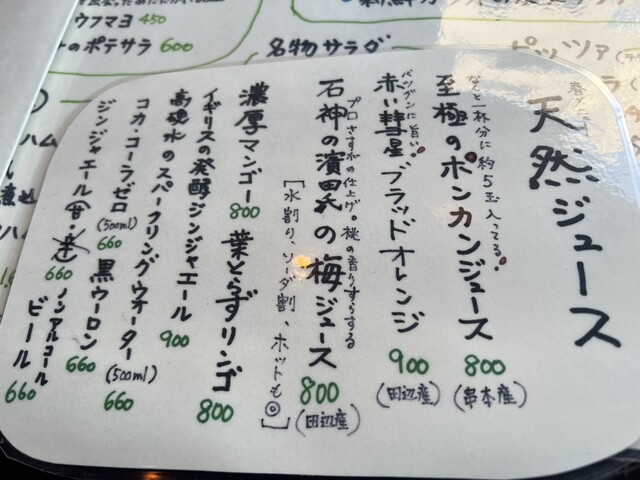 ウフマヨ 450
のポテサラ 600
名物サラダ
ピッツァ
ハム
天然ジュース
なんと一杯分に約5玉入ってる。
至極のポンカンジュース 800
(串本産)
バツグンに旨い。
赤い彗星ブラッドオレンジ 900
(田辺産)
プロさすがの仕上げ。桃の香りすらする
石神の濱田氏の梅ジュース 800
(田辺産)
[水割り、ソーダ割、ホットも◎]
濃厚マンゴー 800
葉とらずリンゴ 800
イギリスの発酵ジンジャエール 900
高硬水のスパークリングウォーター (500ml) 660
コカ・コーラゼロ (500ml) 660
黒ウーロン 660
ジンジャエール(甘・辛) 660
ノンアルコールビール 660